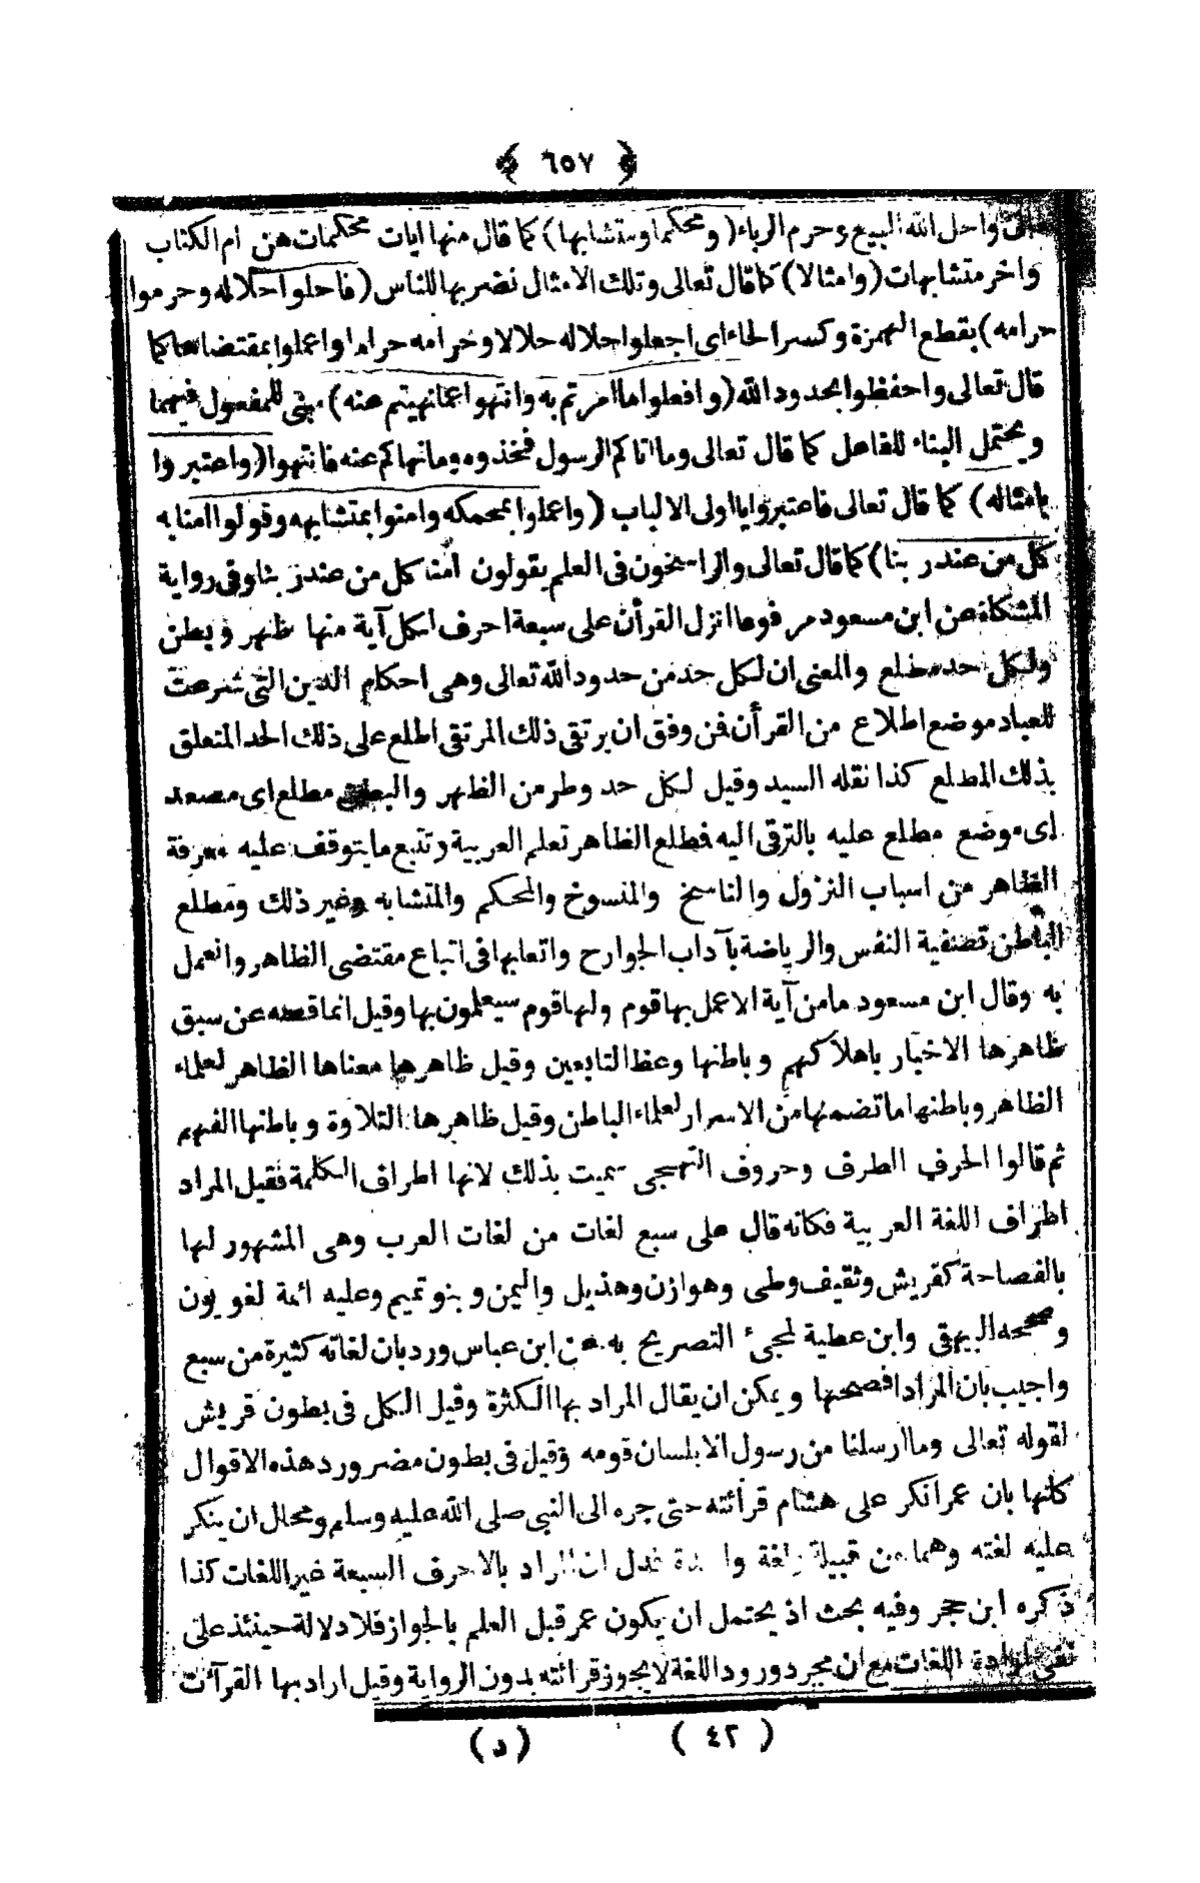 ﴿ ٦٥٧ ﴾
واحل الله البيع وحرم الرباء (ومحكما ومتشابها) كما قال منها ايات محكمات هن ام الكتاب
واخر متشابهات (وامثالا) كما قال تعالى وتلك الامثال نضربها للناس (فاحلوا حلاله وحرموا
حرامه) بقطع الهمزة وكسر الحاء اى اجعلوا حلاله حلالا وحرامه حراما واعملوا بمقتضاها كما
قال تعالى واحفظوا بحدود الله (وافعلوا ما امرتم به وانتهوا عما نهيتم عنه) مبنى للمفعول فيهما
ويحتمل البناء للفاعل كما قال تعالى وما اتاكم الرسول فخذوه وما نهاكم عنه فانتهوا (واعتبروا
بامثاله) كما قال تعالى فاعتبروا يا اولى الالباب (واعملوا بمحكمه وامنوا بمتشابهه وقولوا امنا به
كل من عند ربنا) كما قال تعالى والراسخون فى العلم يقولون امنا كل من عند ربنا وفى رواية
المشكاة عن ابن مسعود مرفوعا انزل القرأن على سبعة احرف لكل آية منها ظهر وبطن
ولكل حد مطلع والمعنى ان لكل حد من حدود الله تعالى وهى احكام الدين التى شرعت
للعباد موضع اطلاع من القرأن فمن وفق ان يرتقى ذلك المرتقى اطلع على ذلك الحد المتعلق
بذلك المطلع كذا نقله السيد وقيل لكل حد وطر من الظهر والبطن مطلع اى مصعد
اى موضع مطلع عليه بالترقى اليه فمطلع الظاهر تعلم العربية وتتبع ما يتوقف عليه معرفة
الظاهر من اسباب النزول والناسخ والمنسوخ والمحكم والمتشابه وغير ذلك ومطلع
الباطن تصفية النفس والرياضة بآداب الجوارح واتعابها فى اتباع مقتضى الظاهر والعمل
به وقال ابن مسعود ما من آية الا عمل بها قوم ولها قوم سيعلمون بها وقيل انما قصه عن سبق
ظاهرها الاخبار باهلاكهم وباطنها وعظ التابعين وقيل ظاهرها معناها الظاهر لعلماء
الظاهر وباطنها ما تضمنها من الاسرار لعلماء الباطن وقيل ظاهرها التلاوة وباطنها الفهم
ثم قالوا الحرف الطرف وحروف التهجى سميت بذلك لانها اطراف الكلمة فقيل المراد
اطراف اللغة العربية فكانه قال على سبع لغات من لغات العرب وهى المشهور لها
بالفصاحة كقريش وثقيف وطى وهوازن وهذيل واليمن وبنو تميم وعليه ائمة لغويون
وصححه البيهقى وابن عطية لمجئ التصريح به عن ابن عباس ورد بان لغاته كثيرة من سبع
واجيب بان المراد افصحها ويمكن ان يقال المراد بها الكثرة وقيل الكل فى بطون قريش
لقوله تعالى وما ارسلنا من رسول الا بلسان قومه وقيل فى بطون مضر ورد هذه الاقوال
كلها بان عمر انكر على هشام قرائته حتى جره الى النبى صلى الله عليه وسلم ومحال ان ينكر
عليه لغته وهما من قبيلة ولغة واحدة فدل ان المراد بالاحرف السبعة غير اللغات كذا
ذكره ابن حجر وفيه بحث اذ يحتمل ان يكون عمر قبل العلم بالجواز فلا دلالة حينئذ على
نفى ارادة اللغات مع ان مجرد ورود اللغة لا يجوز قرائته بدون الرواية وقيل اراد بها القرآت
(٤٢) (د)